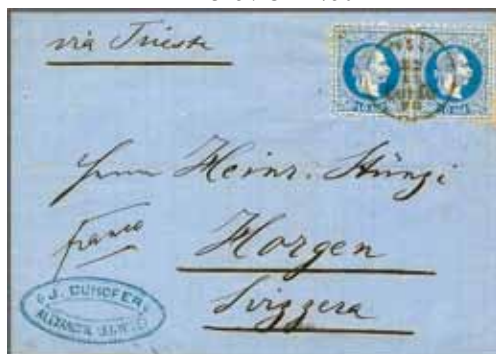 via Trieste
Herrn Heinr. Hüngi
franco
Horgen
Svizzera
J. DUHOFER
ALEXANDRIE